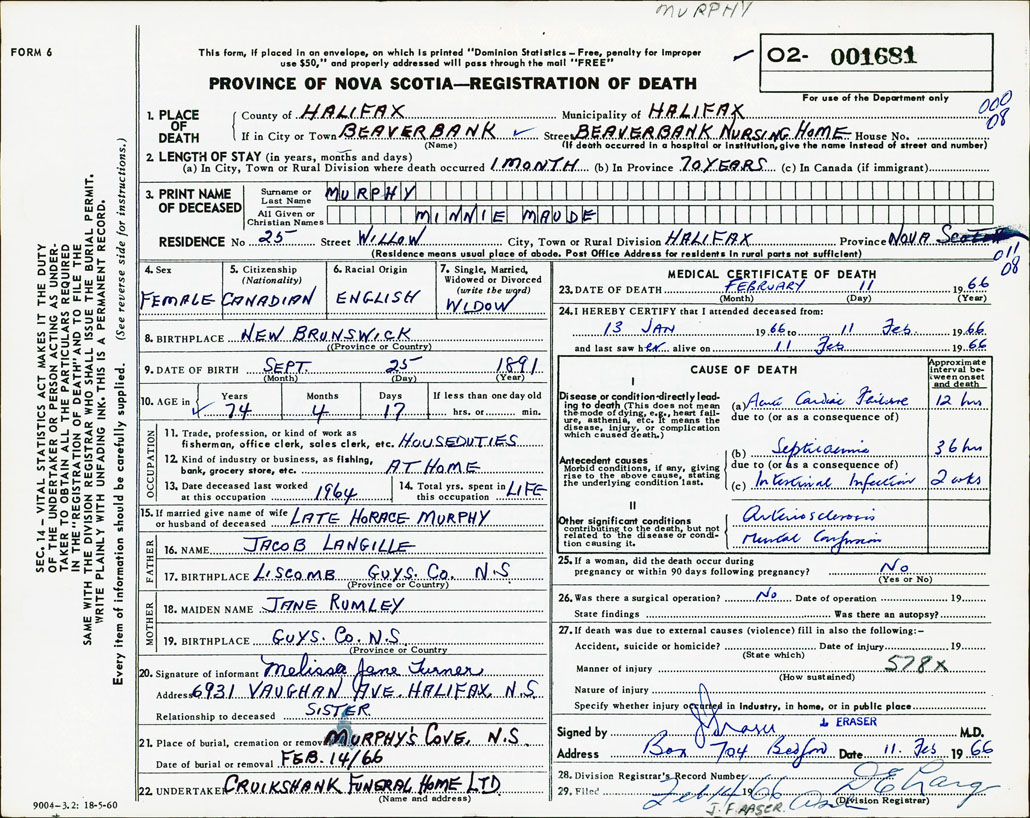 MURPHY
FORM 6
This form, if placed in an envelope, on which is printed "Dominion Statistics – Free, penalty for improper
use $50," and properly addressed will pass through the mail "FREE"
PROVINCE OF NOVA SCOTIA—REGISTRATION OF DEATH
O2- 001681
For use of the Department only
000
08
1. PLACE OF DEATH
County of HALIFAX Municipality of HALIFAX
If in City or Town BEAVERBANK Street BEAVERBANK NURSING HOME House No.
(Name) (If death occurred in a hospital or institution, give the name instead of street and number)
2. LENGTH OF STAY (in years, months and days)
(a) In City, Town or Rural Division where death occurred 1 MONTH (b) In Province 70 YEARS (c) In Canada (if immigrant)
3. PRINT NAME OF DECEASED
Surname or Last Name MURPHY
All Given or Christian Names MINNIE MAUDE
RESIDENCE No 25 Street WILLOW City, Town or Rural Division HALIFAX Province NOVA Scotia
(Residence means usual place of abode. Post Office Address for residents in rural parts not sufficient)
011
08
4. Sex FEMALE
5. Citizenship (Nationality) CANADIAN
6. Racial Origin ENGLISH
7. Single, Married, Widowed or Divorced (write the word) WIDOW
8. BIRTHPLACE NEW BRUNSWICK
(Province or Country)
9. DATE OF BIRTH SEPT. 25 1891
(Month) (Day) (Year)
10. AGE in Years Months Days If less than one day old
74 4 17 hrs. or min.
OCCUPATION
11. Trade, profession, or kind of work as
fisherman, office clerk, sales clerk, etc. HOUSEDUTIES
12. Kind of industry or business, as fishing,
bank, grocery store, etc. AT HOME
13. Date deceased last worked
at this occupation 1964
14. Total yrs. spent in
this occupation LIFE
15. If married give name of wife
or husband of deceased LATE HORACE MURPHY
FATHER
16. NAME JACOB LANGILLE
17. BIRTHPLACE LISCOMB GUYS. CO. N.S.
(Province or Country)
MOTHER
18. MAIDEN NAME JANE RUMLEY
19. BIRTHPLACE GUYS. CO. N.S.
(Province or Country
20. Signature of informant Melissa Jane Turner
Address 6931 VAUGHAN AVE. HALIFAX, N.S.
Relationship to deceased SISTER
21. Place of burial, cremation or removal MURPHY'S COVE, N.S.
Date of burial or removal FEB. 14/66
22. UNDERTAKER CRUIKSHANK FUNERAL HOME LTD
(Name and address)
9004–3.2: 18-5-60
MEDICAL CERTIFICATE OF DEATH
23. DATE OF DEATH FEBRUARY 11 1966
(Month) (Day) (Year)
24. I HEREBY CERTIFY that I attended deceased from:
13 JAN 1966 to 11 Feb 1966
and last saw her alive on 11 Feb 1966
CAUSE OF DEATH
Approximate interval between onset and death
I
Disease or condition directly leading to death (This does not mean
the mode of dying, e.g., heart failure, asthenia, etc. It means the
disease, injury, or complication
which caused death.)
(a) Acute Cardiac Failure 12 hrs
due to (or as a consequence of)
Antecedent causes
Morbid conditions, if any, giving
rise to the above cause, stating
the underlying condition last.
(b) Septicaemia 36 hrs
due to (or as a consequence of)
(c) Intestinal Infection 2 wks
II
Other significant conditions
contributing to the death, but not
related to the disease or condition causing it.
Arteriosclerosis
Mental Confusion
25. If a woman, did the death occur during
pregnancy or within 90 days following pregnancy? No
(Yes or No)
26. Was there a surgical operation? No Date of operation 19
State findings Was there an autopsy?
27. If death was due to external causes (violence) fill in also the following:–
Accident, suicide or homicide? Date of injury 19
(State which)
Manner of injury 578X
(How sustained)
Nature of injury
Specify whether injury occurred in industry, in home, or in public place
Signed by J Fraser M.D.
FRASER
Address Box 704 Bedford Date 11. Feb 1966
28. Division Registrar's Record Number
29. Filed Feb 14 1966
(Division Registrar)
J. F. FRASER
SEC. 14 – VITAL STATISTICS ACT MAKES IT THE DUTY
OF THE UNDERTAKER OR PERSON ACTING AS UNDER-
TAKER TO OBTAIN ALL THE PARTICULARS REQUIRED
IN THE "REGISTRATION OF DEATH" AND TO FILE THE
SAME WITH THE DIVISION REGISTRAR WHO SHALL ISSUE THE BURIAL PERMIT.
WRITE PLAINLY WITH UNFADING INK. THIS IS A PERMANENT RECORD.
Every item of information should be carefully supplied. (See reverse side for instructions.)